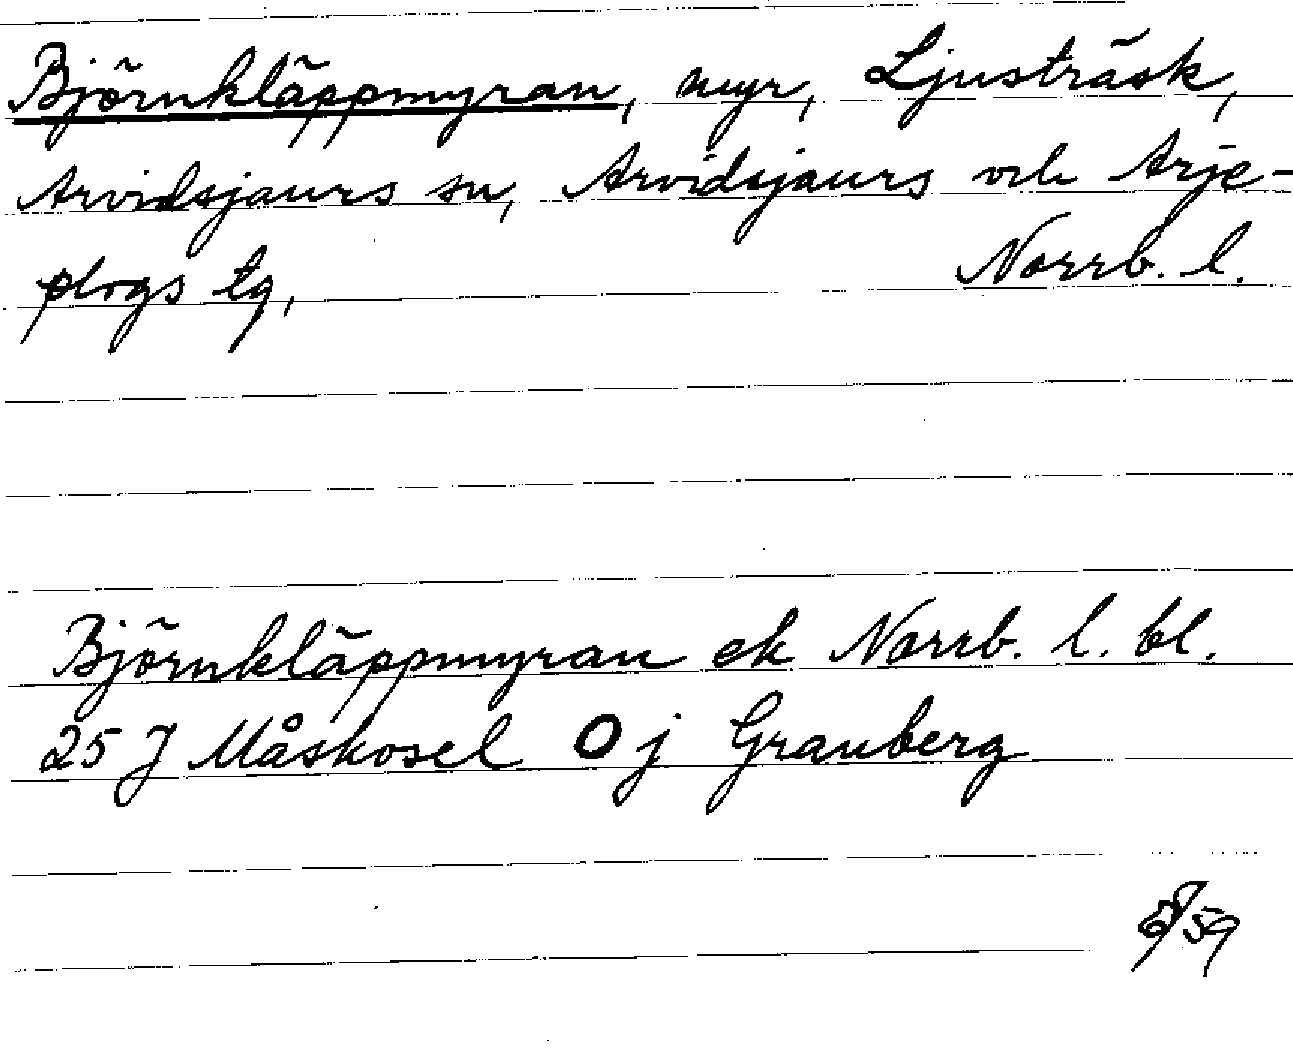 Björnkläppmyran, myr, Ljusträsk,
Arvidsjaurs sn, Arvidsjaurs och Arje-
plogs tg, Norrb. l.
Björnkläppmyran ek Norrb. l. bl.
25 J Måskosel O j Granberg